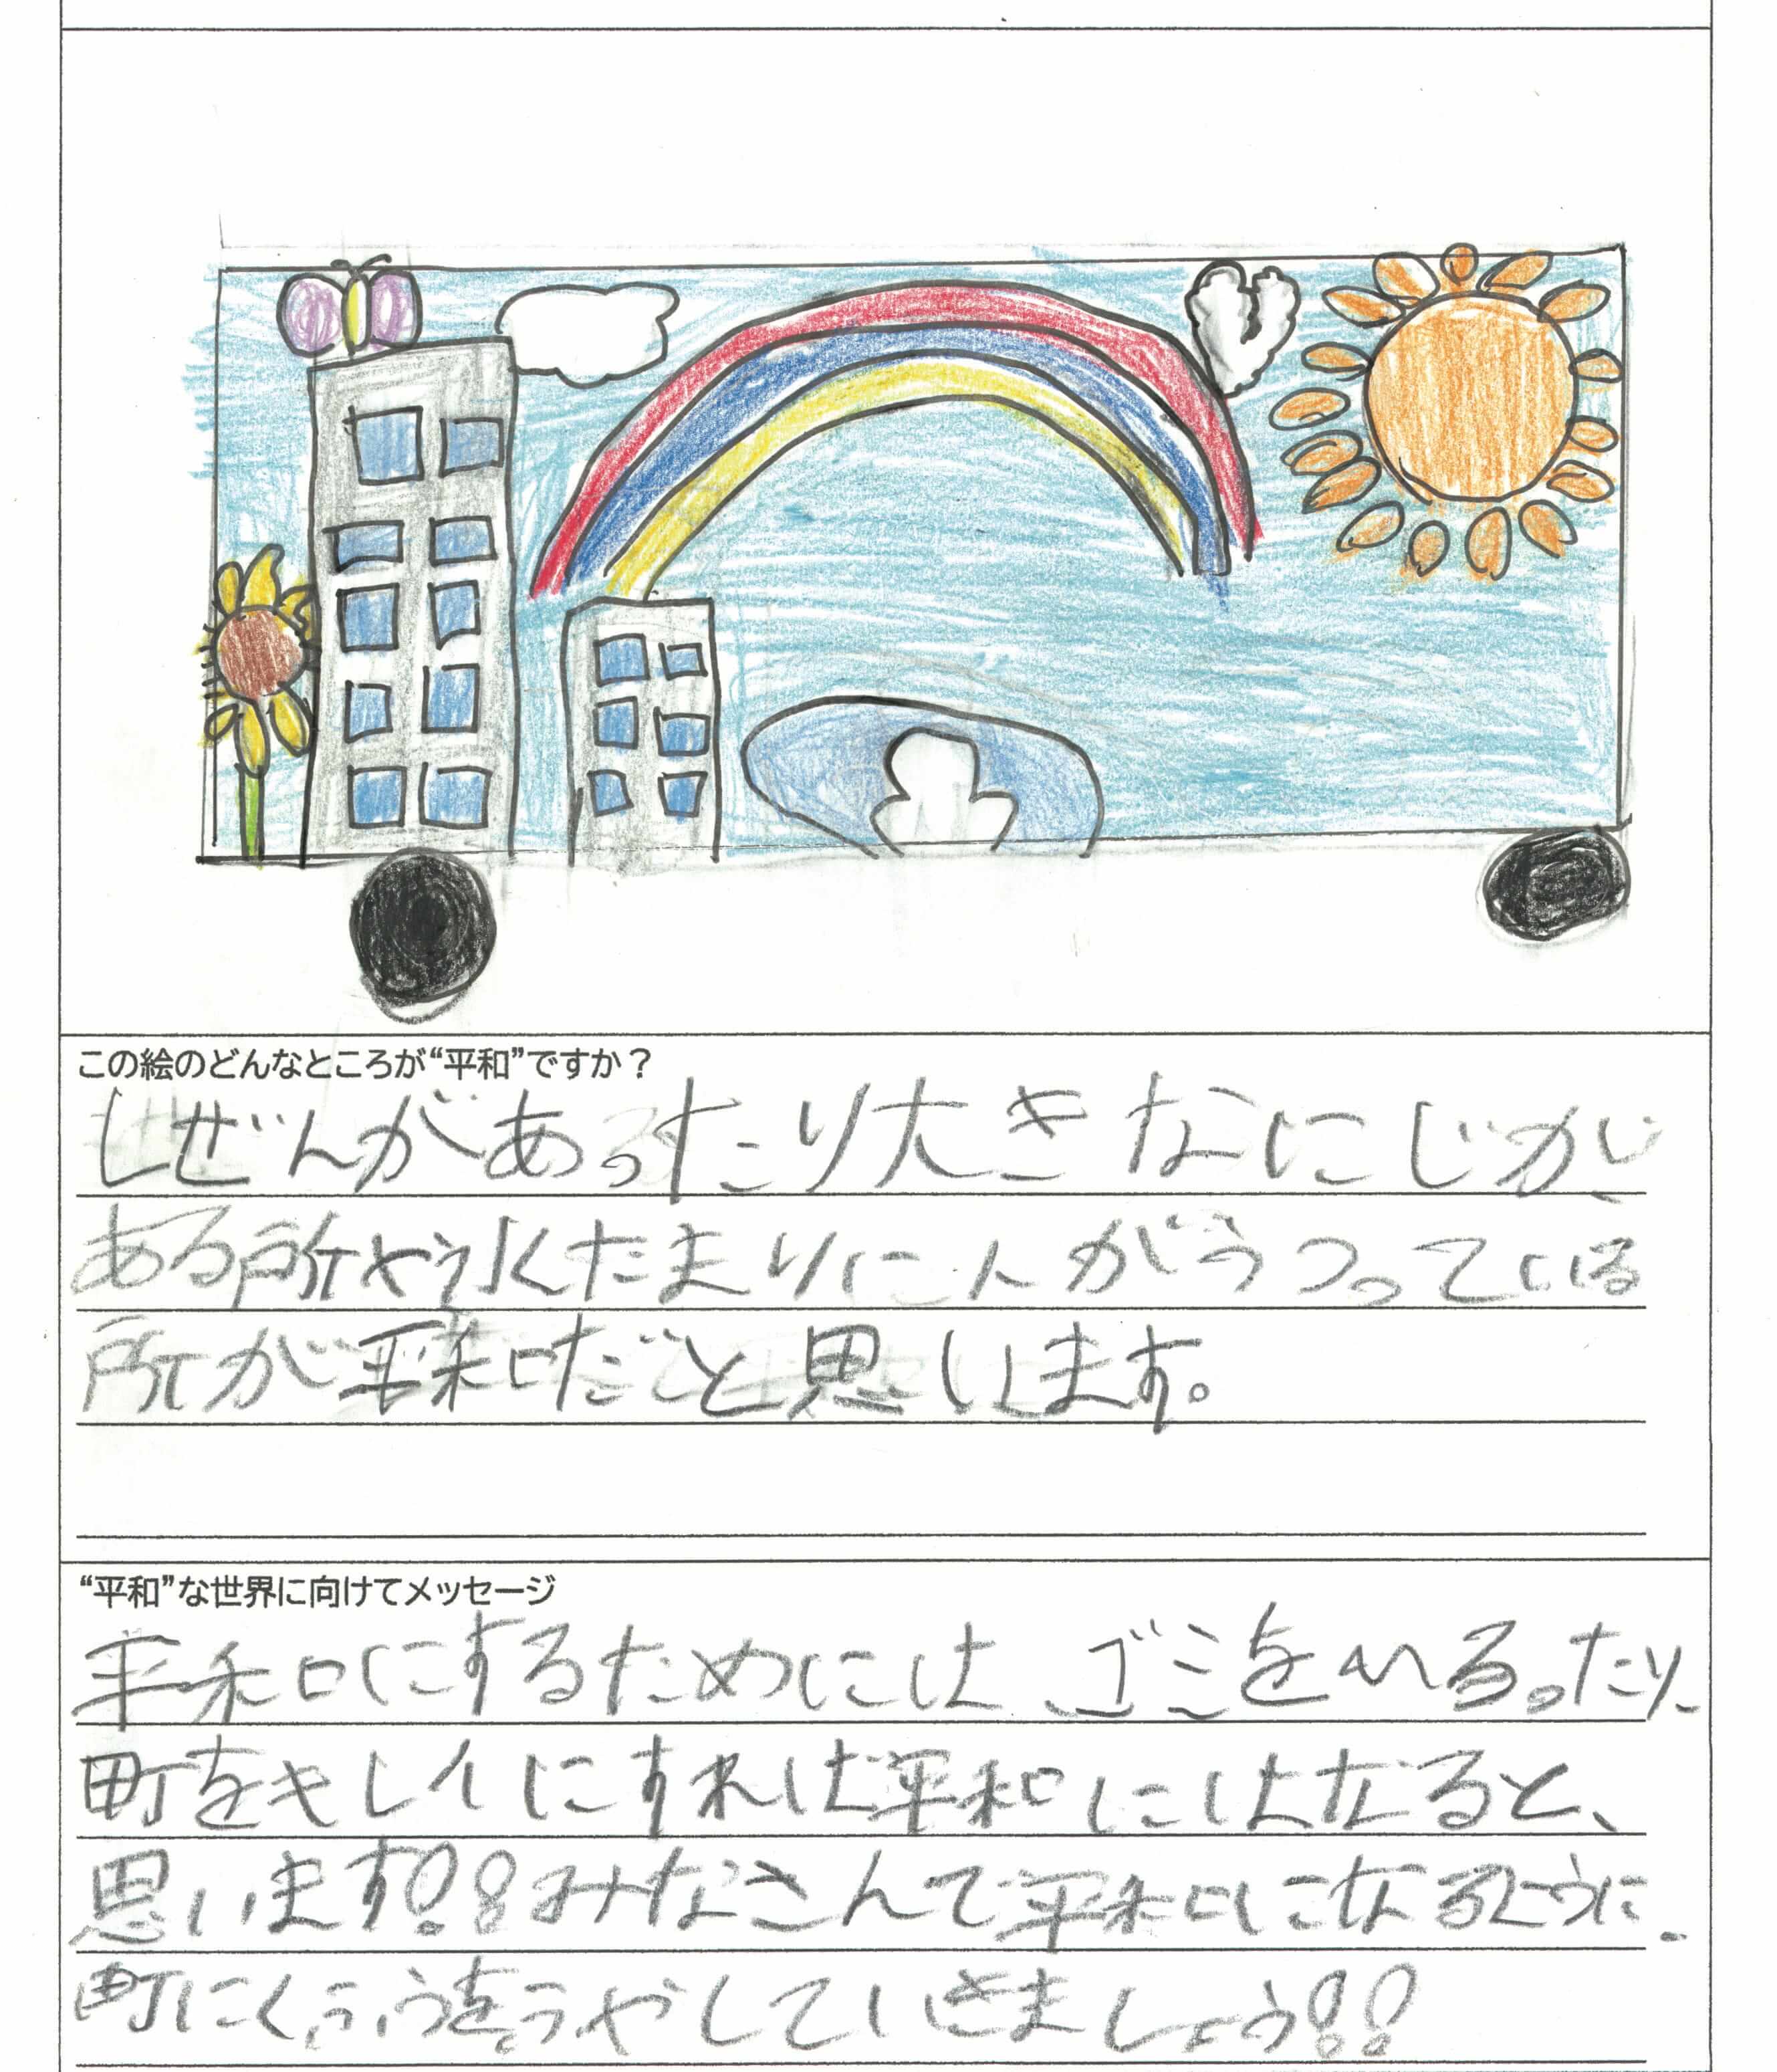 この絵のどんなところが“平和”ですか？
しぜんがあったり大きなにじが
ある所や水たまりに人がうつっている
所が平和だと思います。
“平和”な世界に向けてメッセージ
平和にするためには、ゴミをへるったり、
町をキレイにすれば平和にはなると、
思います!!みなさんで平和になるように、
町にくふうをふやしていきましょう!!